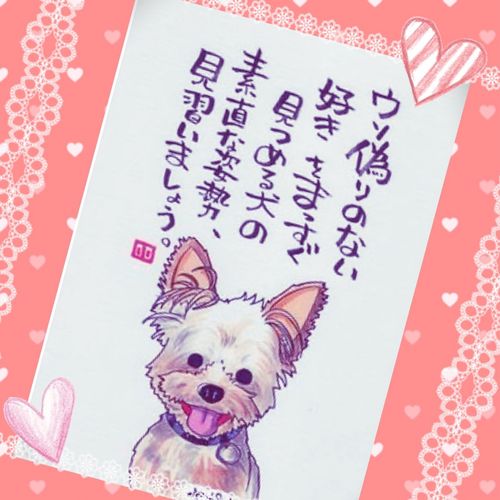 ウソ偽りのない
好きをまっすぐ
見つめる犬の
素直な姿勢、
見習いましょう。